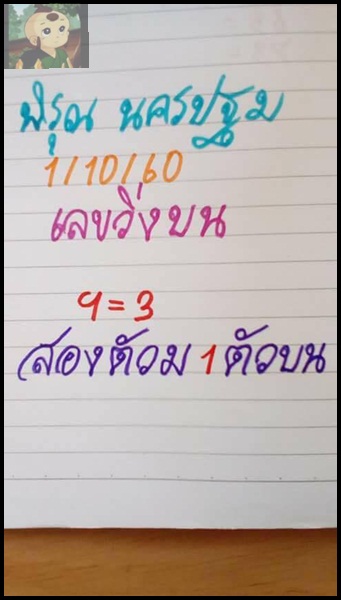 พิรุณ นครปฐม
1/10/60
เลขวิ่งบน
9=3
สองตัวม 1 ตัวบน